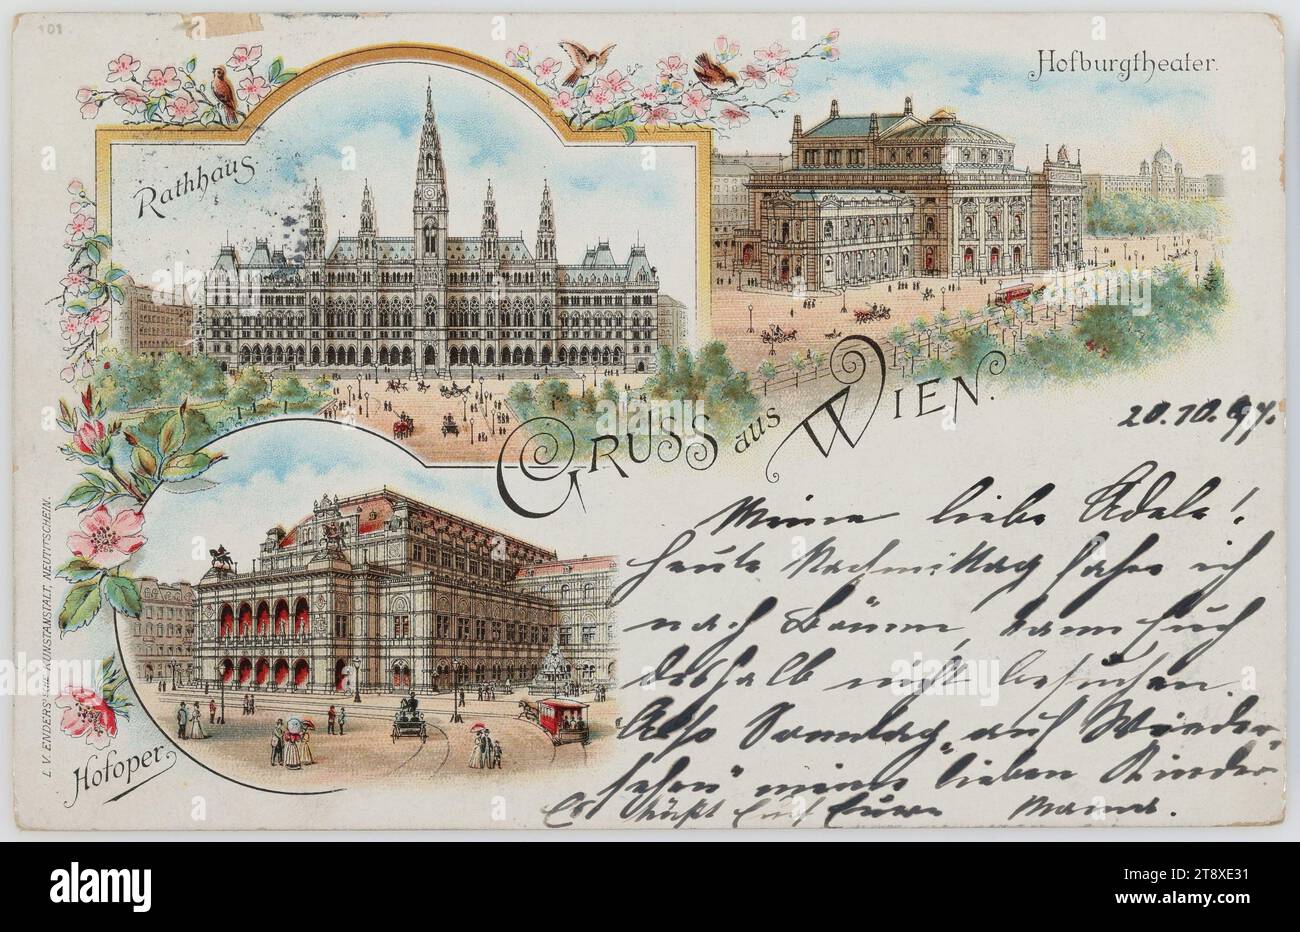 101
Hofburgtheater.
Rathhaus
GRUSS aus WIEN.
20.10.97.
Meine liebe Adele!
Heute Nachmittag fahre ich
nach Bäumen, kann Euch
deshalb nicht besuchen.
Also Sonntag „auf Wieder-
sehen" meine lieben Kinder
Es küßt Euch Euere Mama.
Hofoper.
L. V. ENDERS'SCHE KUNSTANSTALT, NEUTITSCHEIN.
alamy
Image ID: 2T8XE31
www.alamy.com